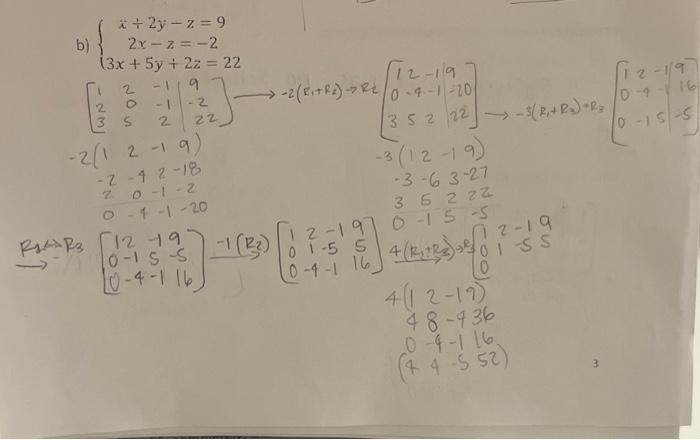 b) { x + 2y − z = 9
2x − z = −2
3x + 5y + 2z = 22
[1 2 -1 | 9
2 0 -1 | -2
3 5 2 | 22] → -2(R1+R2)→R2 [1 2 -1 | 9
0 -4 -1 | -20
3 5 2 | 22] → -3(R1+R3)→R3 [1 2 -1 | 9
0 -4 -1 | 16
0 -1 5 | -5]
-2(1 2 -1 9)
-2 -4 2 -18
2 0 -1 -2
0 -4 -1 -20
-3(1 2 -1 9)
-3 -6 3 -27
3 5 2 22
0 -1 5 -5
R2↔R3 → [1 2 -1 9
0 -1 5 -5
0 -4 -1 16] -1(R2) → [1 2 -1 9
0 1 -5 5
0 -4 -1 16] 4(R1+R3)→R3 [1 2 -1 9
0 1 -5 5
0
4(1 2 -1 9)
4 8 -4 36
0 -4 -1 16
(4 4 -5 52)
3